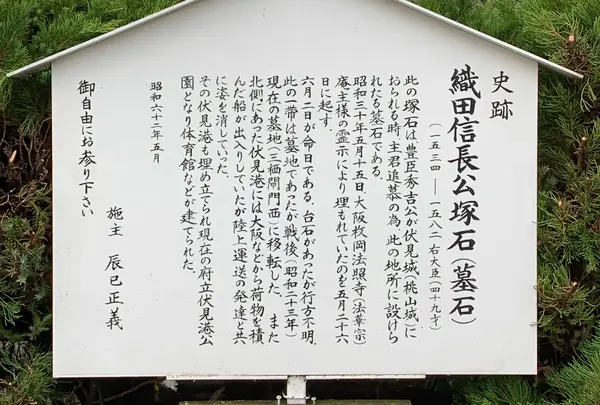 史跡
織田信長公塚石(墓石)
(一五三四 ― 一五八二・右大臣(四十九才)
此の塚石は豊臣秀吉公が伏見城(桃山城)に
おられる時、主君追墓の為、此の地所に設けら
れたる墓石である。
昭和三十年五月十五日、大阪枚岡法照寺(法華宗)
庵主様の霊示により埋もれていたのを五月二十六
日に起す。
六月二日が命日である。台石があったが行方不明、
此の一帯は墓地であったが戦後(昭和二十三年)
現在の墓地(三栖閘門西)に移転した。 また
北側にあった伏見港には大阪などから荷物を積
んだ船が出入りしていたが陸上運送の発達と共
に姿を消していった。
その伏見港も埋め立てられ現在の府立伏見港公
園となり体育館などが建てられた。
昭和六十二年五月
御自由にお参り下さい
施主 辰巳正義